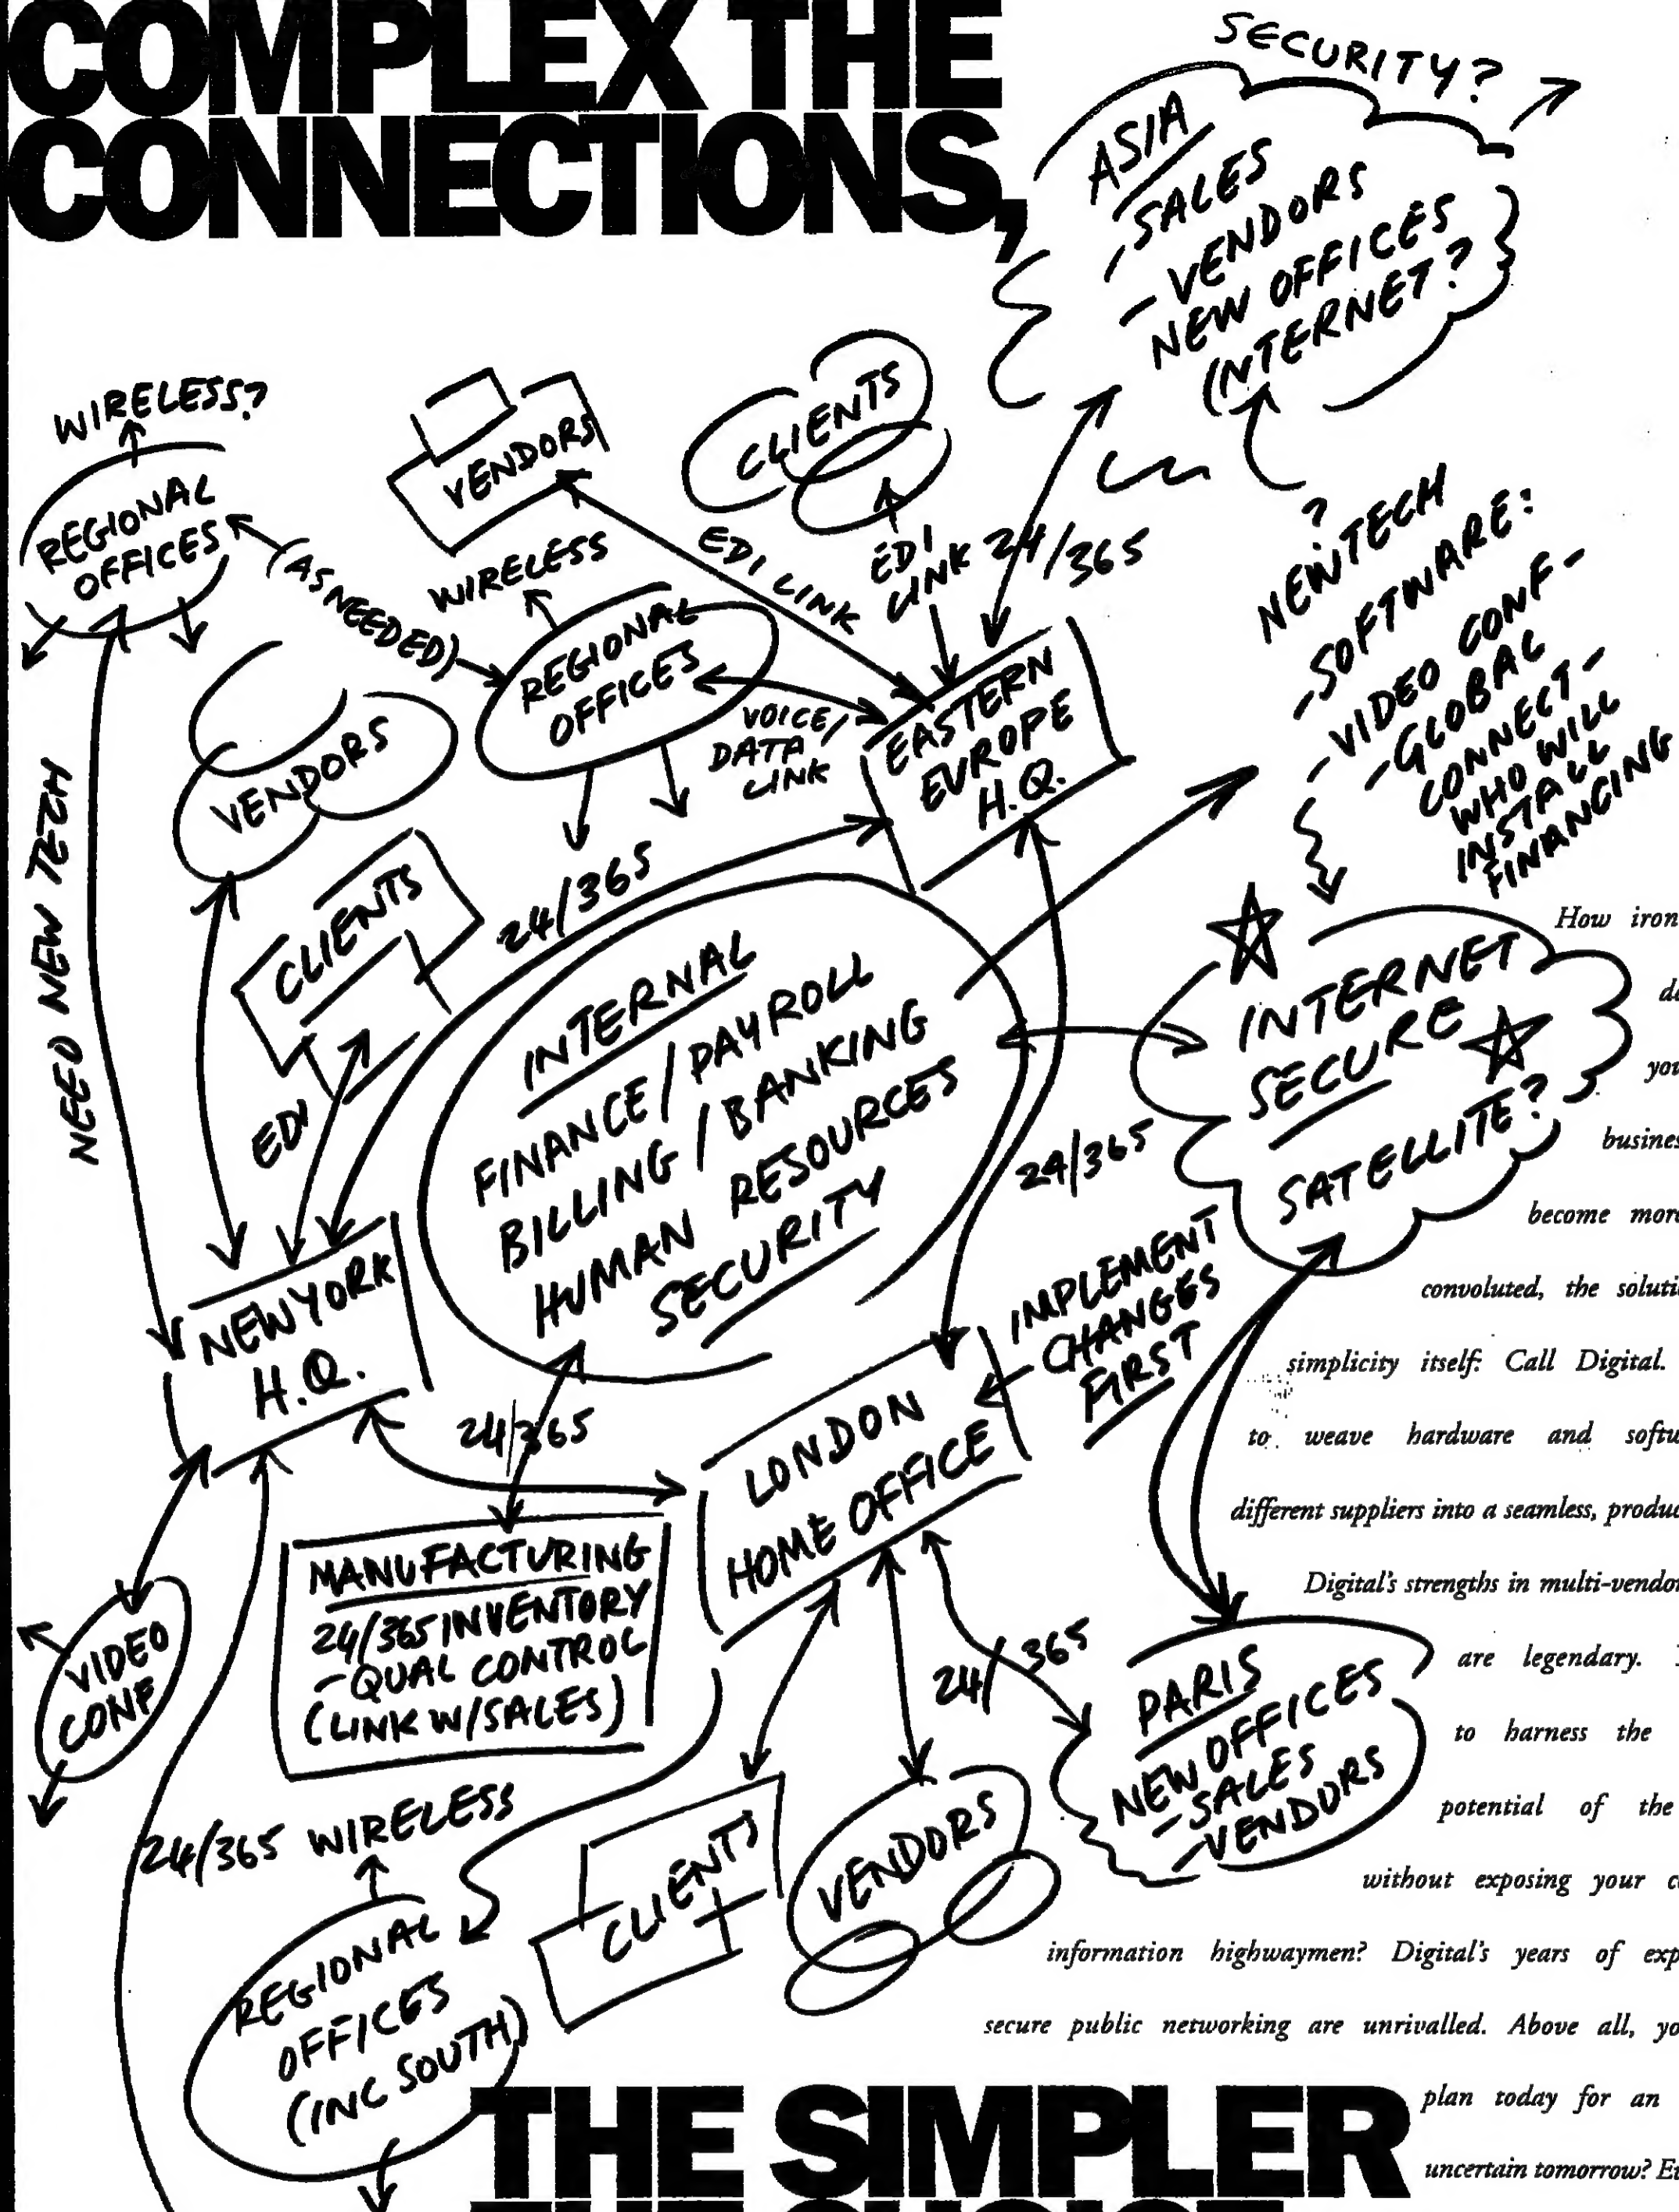 COMPLEX THE
CONNECTIONS,
SECURITY?
ASIA
-SALES
-VENDORS
NEW OFFICES
INTERNET?
WIRELESS?
REGIONAL
OFFICES
(AS NEEDED)
VENDORS
EDI LINK
CLIENTS
EDI
LINK
24/365
WIRELESS
REGIONAL
OFFICES
VOICE/
DATA
LINK
EASTERN
EUROPE
H.Q.
?
NEW TECH
-SOFTWARE:
-VIDEO CONF-
-GLOBAL
CONNECT-
WHO WILL
INSTALL
FINANCING
NEED NEW TECH
VENDORS
CLIENTS
EDI
24/365
INTERNAL
FINANCE/PAYROLL
BILLING/BANKING
HUMAN RESOURCES
SECURITY
INTERNET
SECURE
SATELLITE?
24/365
NEW YORK
H.Q.
24/365
LONDON
HOME OFFICE
IMPLEMENT
CHANGES
FIRST
MANUFACTURING
24/365 INVENTORY
-QUAL CONTROL
(LINK W/SALES)
VIDEO
CONF
24/365
PARIS
NEW OFFICES
-SALES
-VENDORS
24/365 WIRELESS
REGIONAL
OFFICES
(INC SOUTH)
CLIENTS
VENDORS
How
busines
become
convoluted, the
simplicity itself: Call Digital.
to weave hardware and
different suppliers into a seamless,
Digital's strengths in
are legendary.
to harness the
potential of the
without exposing your
information highwaymen? Digital's years of
secure public networking are unrivalled. Above all,
plan today for an
uncertain tomorrow?
THE SIMPLER